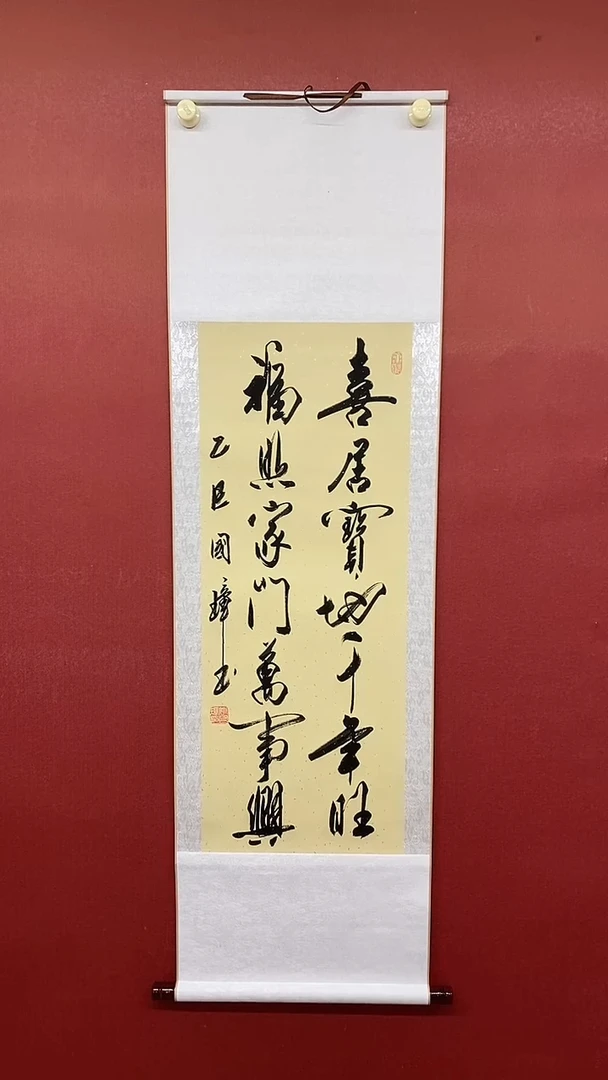 喜居寳地千年旺
福照家門萬事興
乙巳國璋書